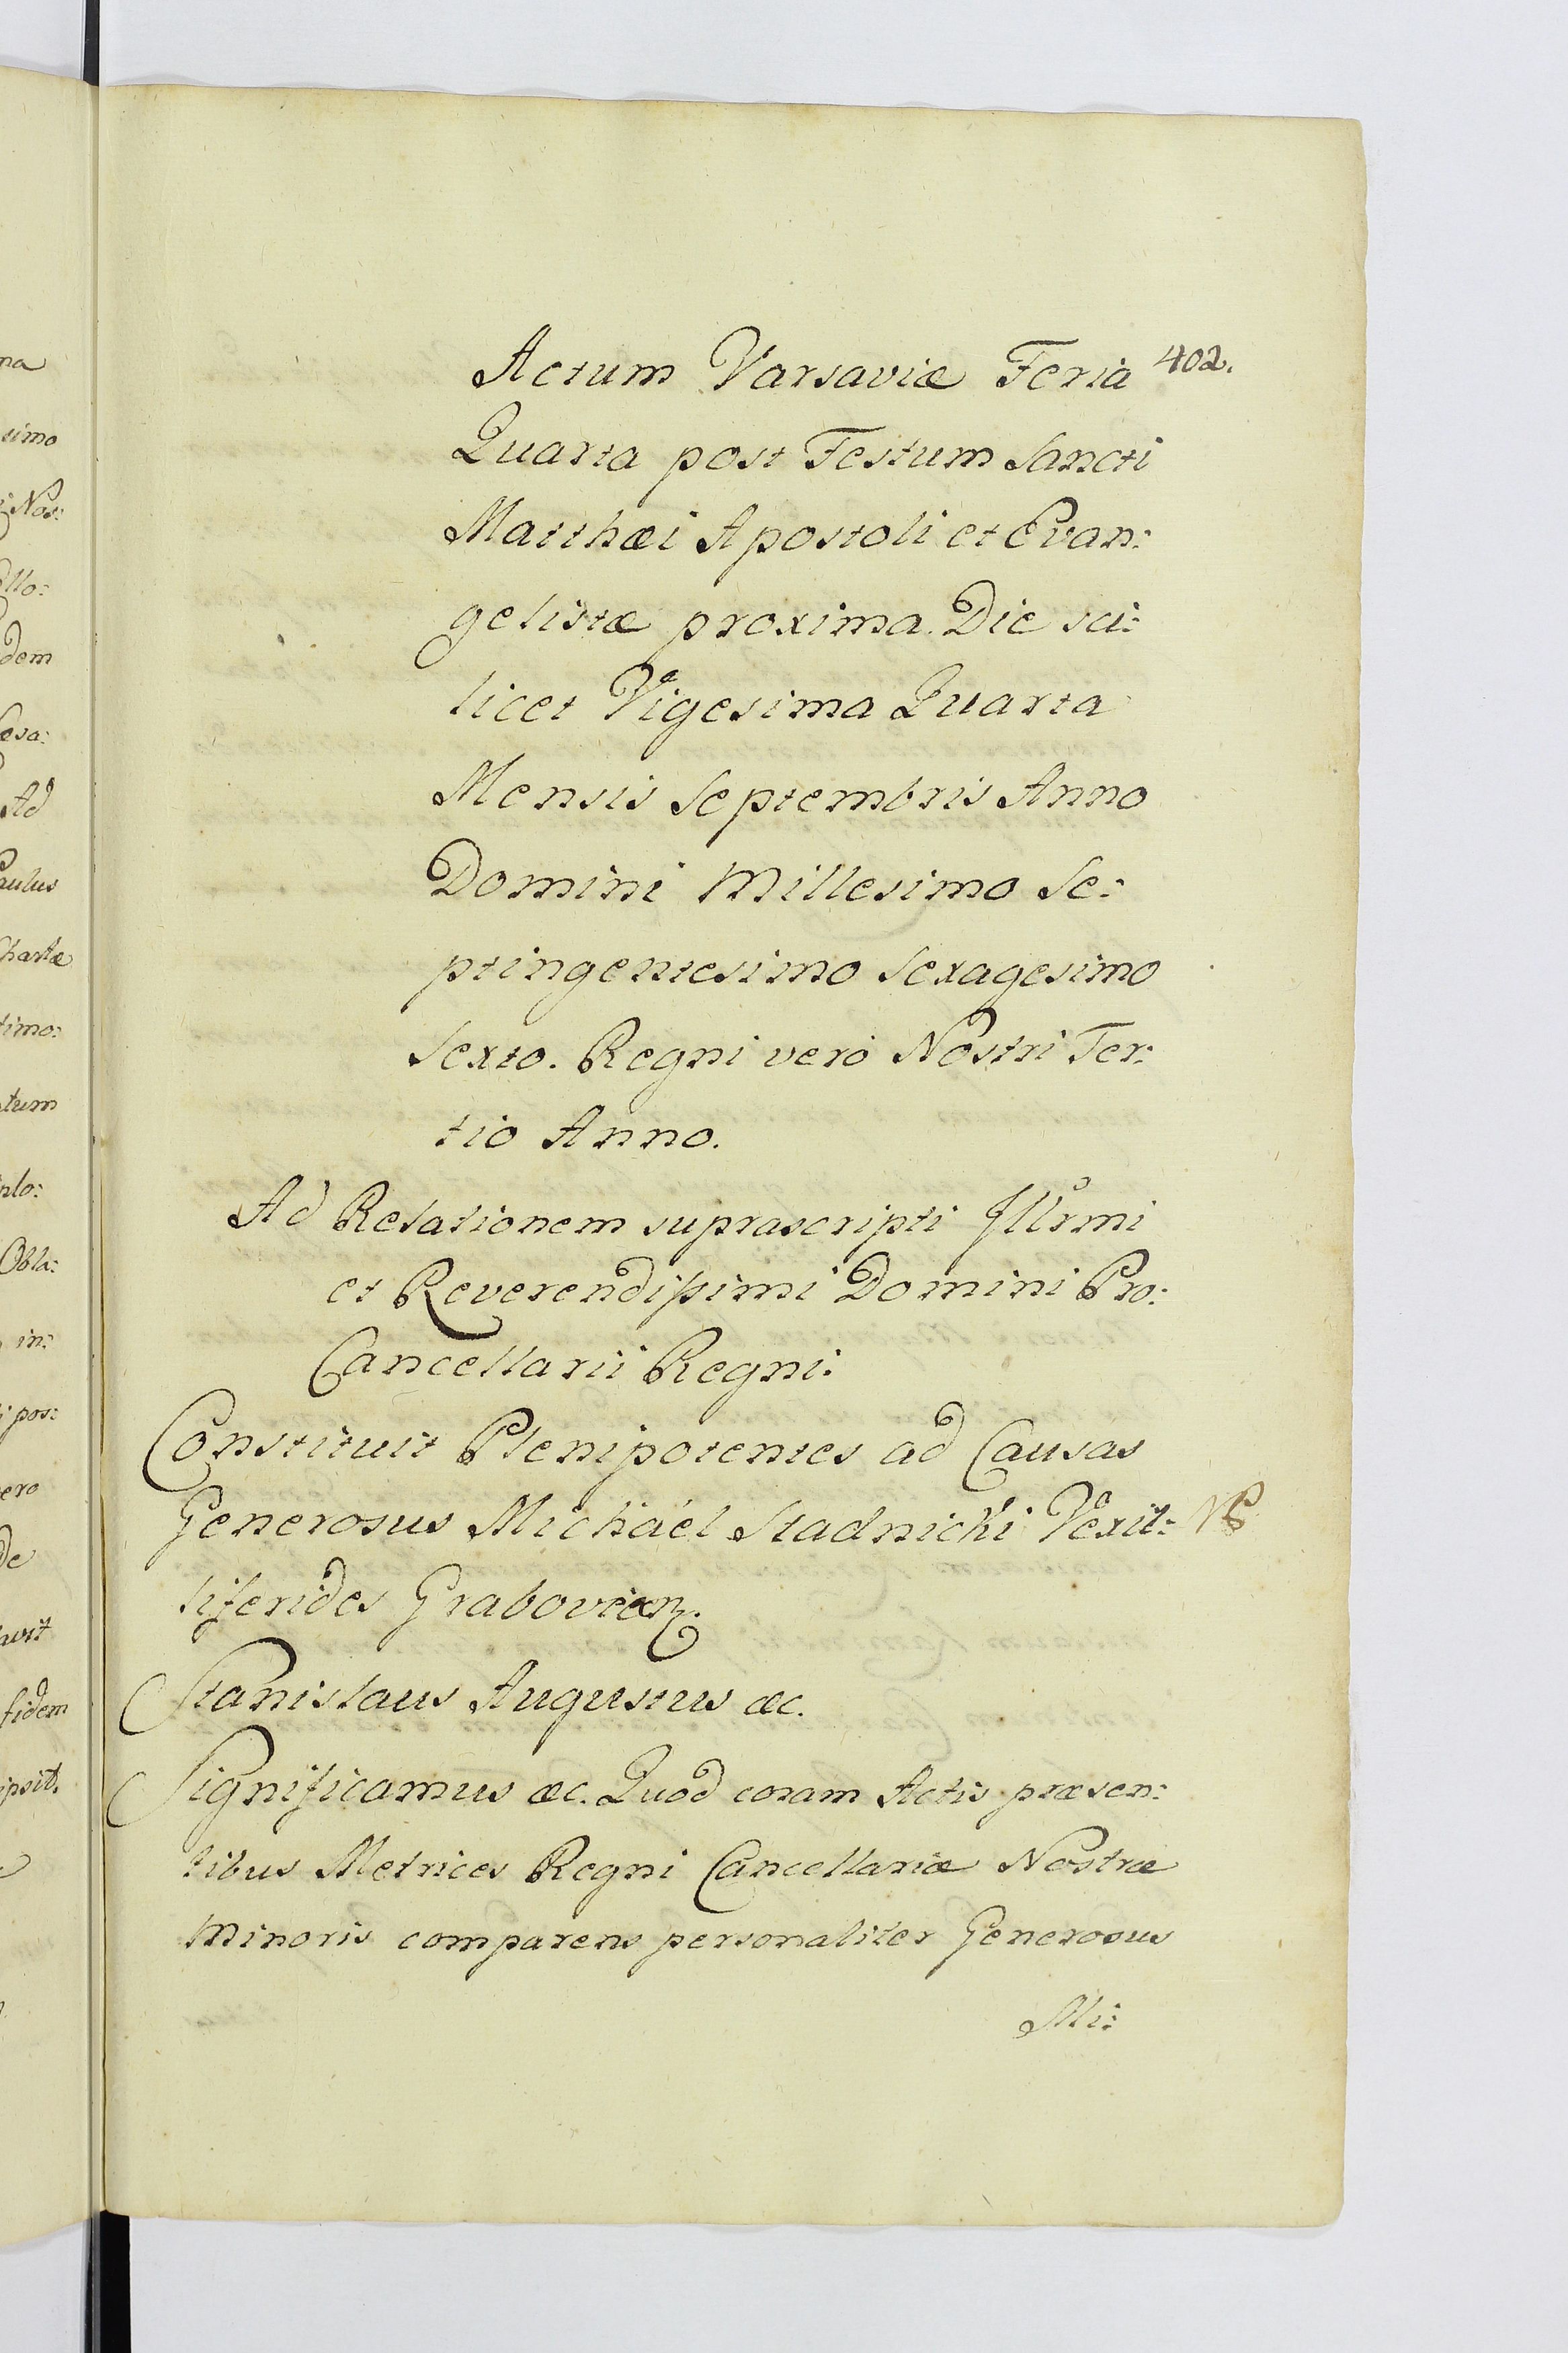 402.
Actum Varsaviæ Feria
Quarta post Festum Sancti
Matthæi Apostoli et Evan:
gelistæ proxima. Die sci:
licet Vigesima Quarta
Mensis Septembris Anno
Domini Millesimo Se:
ptingentesimo Sexagesimo
Sexto. Regni vero Nostri Ter:
tio Anno.
Ad Relationem suprascripti Illr̃mi
et Reverendissimi Domini Pro:
Cancellarii Regni.
Constituit Plenipotentes ad Causas
Generosus Michaël Stadnicki Vexil: NB
liferides Grabovien.
Stanislaus Augustus æc.
Significamus æc. Quod coram Actis præsen:
tibus Metrices Regni Cancellariæ Nostræ
Minoris comparens personaliter Generosus
Mi:
na
simo
Nos:
llo:
dem
Cæsa:
Ad
Paulus
Chartæ
timo:
tum
nlo:
Obla:
in:
i pos:
ero
de
avit
fidem
ipsit.